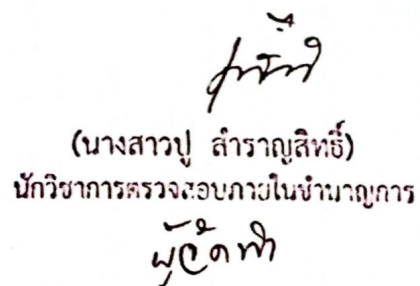 (นางสาวปู สำราญสิทธิ์)
นักวิชาการตรวจสอบภายในชำนาญการ
ผู้จัดทำ